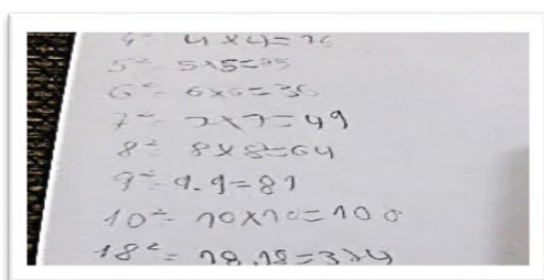 4² = 4×4=16
5² = 5×5=25
6² = 6×6=36
7² = 7×7=49
8² 8×8=64
9² = 9.9=81
10² = 10×10=100
18² = 18.18=324